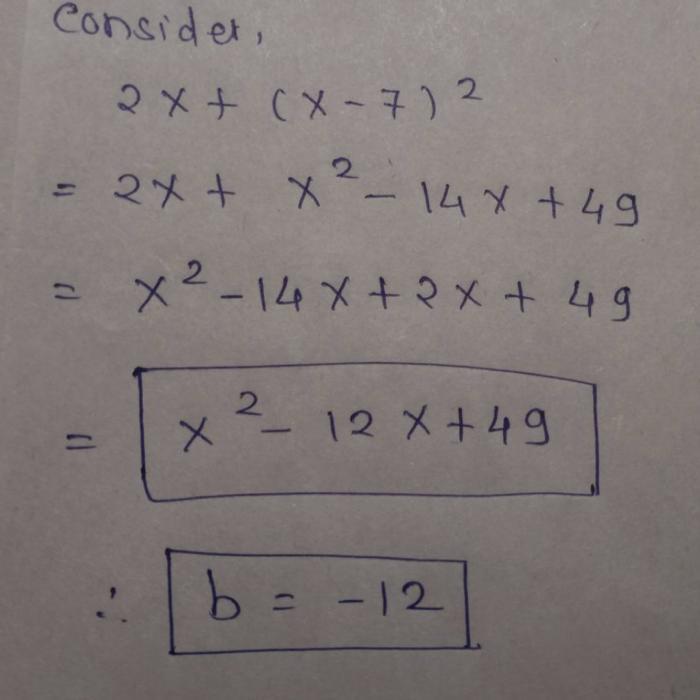 Consider,
2x + (x - 7)²
= 2x + x² - 14x + 49
= x² - 14x + 2x + 49
= x² - 12x + 49
∴ b = -12